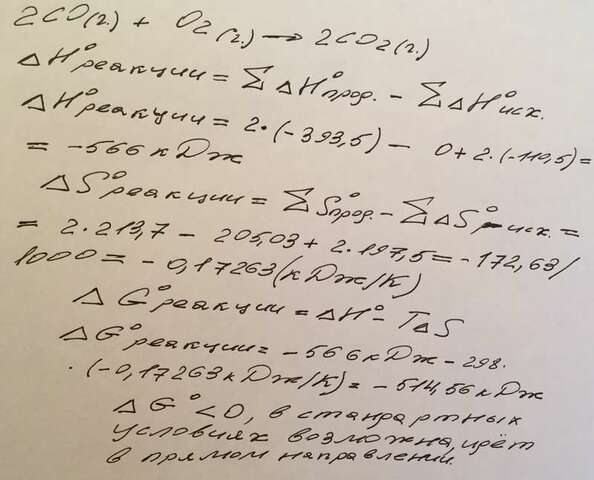 2CO(г.) + O2(г.) → 2CO2(г.)
ΔH°реакции = ΣΔH°прод. - ΣΔH°исх.
ΔH°реакции = 2·(-393,5) - 0+2·(-110,5) =
= -566 кДж
ΔS°реакции = ΣS°прод. - ΣΔS°исх. =
= 2·213,7 - 205,03 + 2·197,5 = -172,63/
1000 = -0,17263 (кДж/К)
ΔG°реакции = ΔH° - TΔS
ΔG°реакции = -566 кДж - 298·
·(-0,17263 кДж/К) = -514,56 кДж
ΔG°<0, в стандартных
условиях возможна, идёт
в прямом направлении.